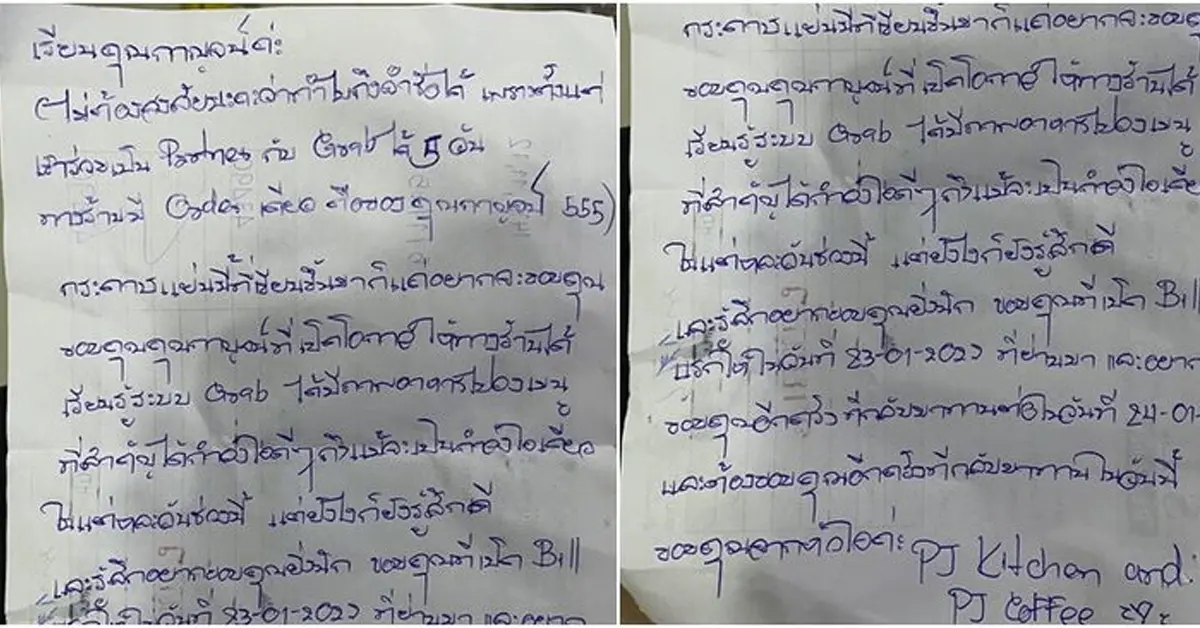 เรียนคุณกาญจน์ค่ะ
(ไม่ต้องสงสัยนะคะว่าทำไมถึงจำชื่อได้ เพราะตั้งแต่
เข้าร่วมเป็น Partner กับ Grab ได้ 5 วัน
ทางร้านมี Order เดียว คือของคุณกาญจน์ 555)
กระดาษแผ่นนี้ที่เขียนขึ้นมาก็แค่อยากจะขอบคุณ
ขอบคุณคุณกาญจน์ที่เปิดโอกาสให้ทางร้านได้
เรียนรู้ระบบ Grab ได้มีภาพอาหารไปลงเมนู
ที่สำคัญได้กำลังใจดีๆ ถึงแม้จะเป็นกำลังใจเดียว
ในแต่ละวันช่วงนี้ แต่ยังไงก็ยังรู้สึกดี
และรู้สึกอยากขอบคุณยิ่งนัก ขอบคุณที่เปิด Bill
แรกให้ในวันที่ 23-01-2022 ที่ผ่านมา และอยาก
กระดาษแผ่นนี้ที่เขียนขึ้นมาก็แค่อยากจะขอบคุ
ขอบคุณคุณกาญจน์ที่เปิดโอกาสให้ทางร้านได้
เรียนรู้ระบบ Grab ได้มีภาพอาหารไปลงเมนู
ที่สำคัญได้กำลังใจดีๆ ถึงแม้จะเป็นกำลังใจเดีย
ในแต่ละวันช่วงนี้ แต่ยังไงก็ยังรู้สึกดี
และรู้สึกอยากขอบคุณยิ่งนัก ขอบคุณที่เปิด Bill
แรกให้ในวันที่ 23-01-2022 ที่ผ่านมา และอยาก
ขอบคุณอีกครั้ง ที่กลับมาทานต่อในวันที่ 24-01-
และต้องขอบคุณอีกครั้งที่กลับมาทานในวันนี้
ขอบคุณจากหัวใจค่ะ PJ Kitchen and
PJ Coffee